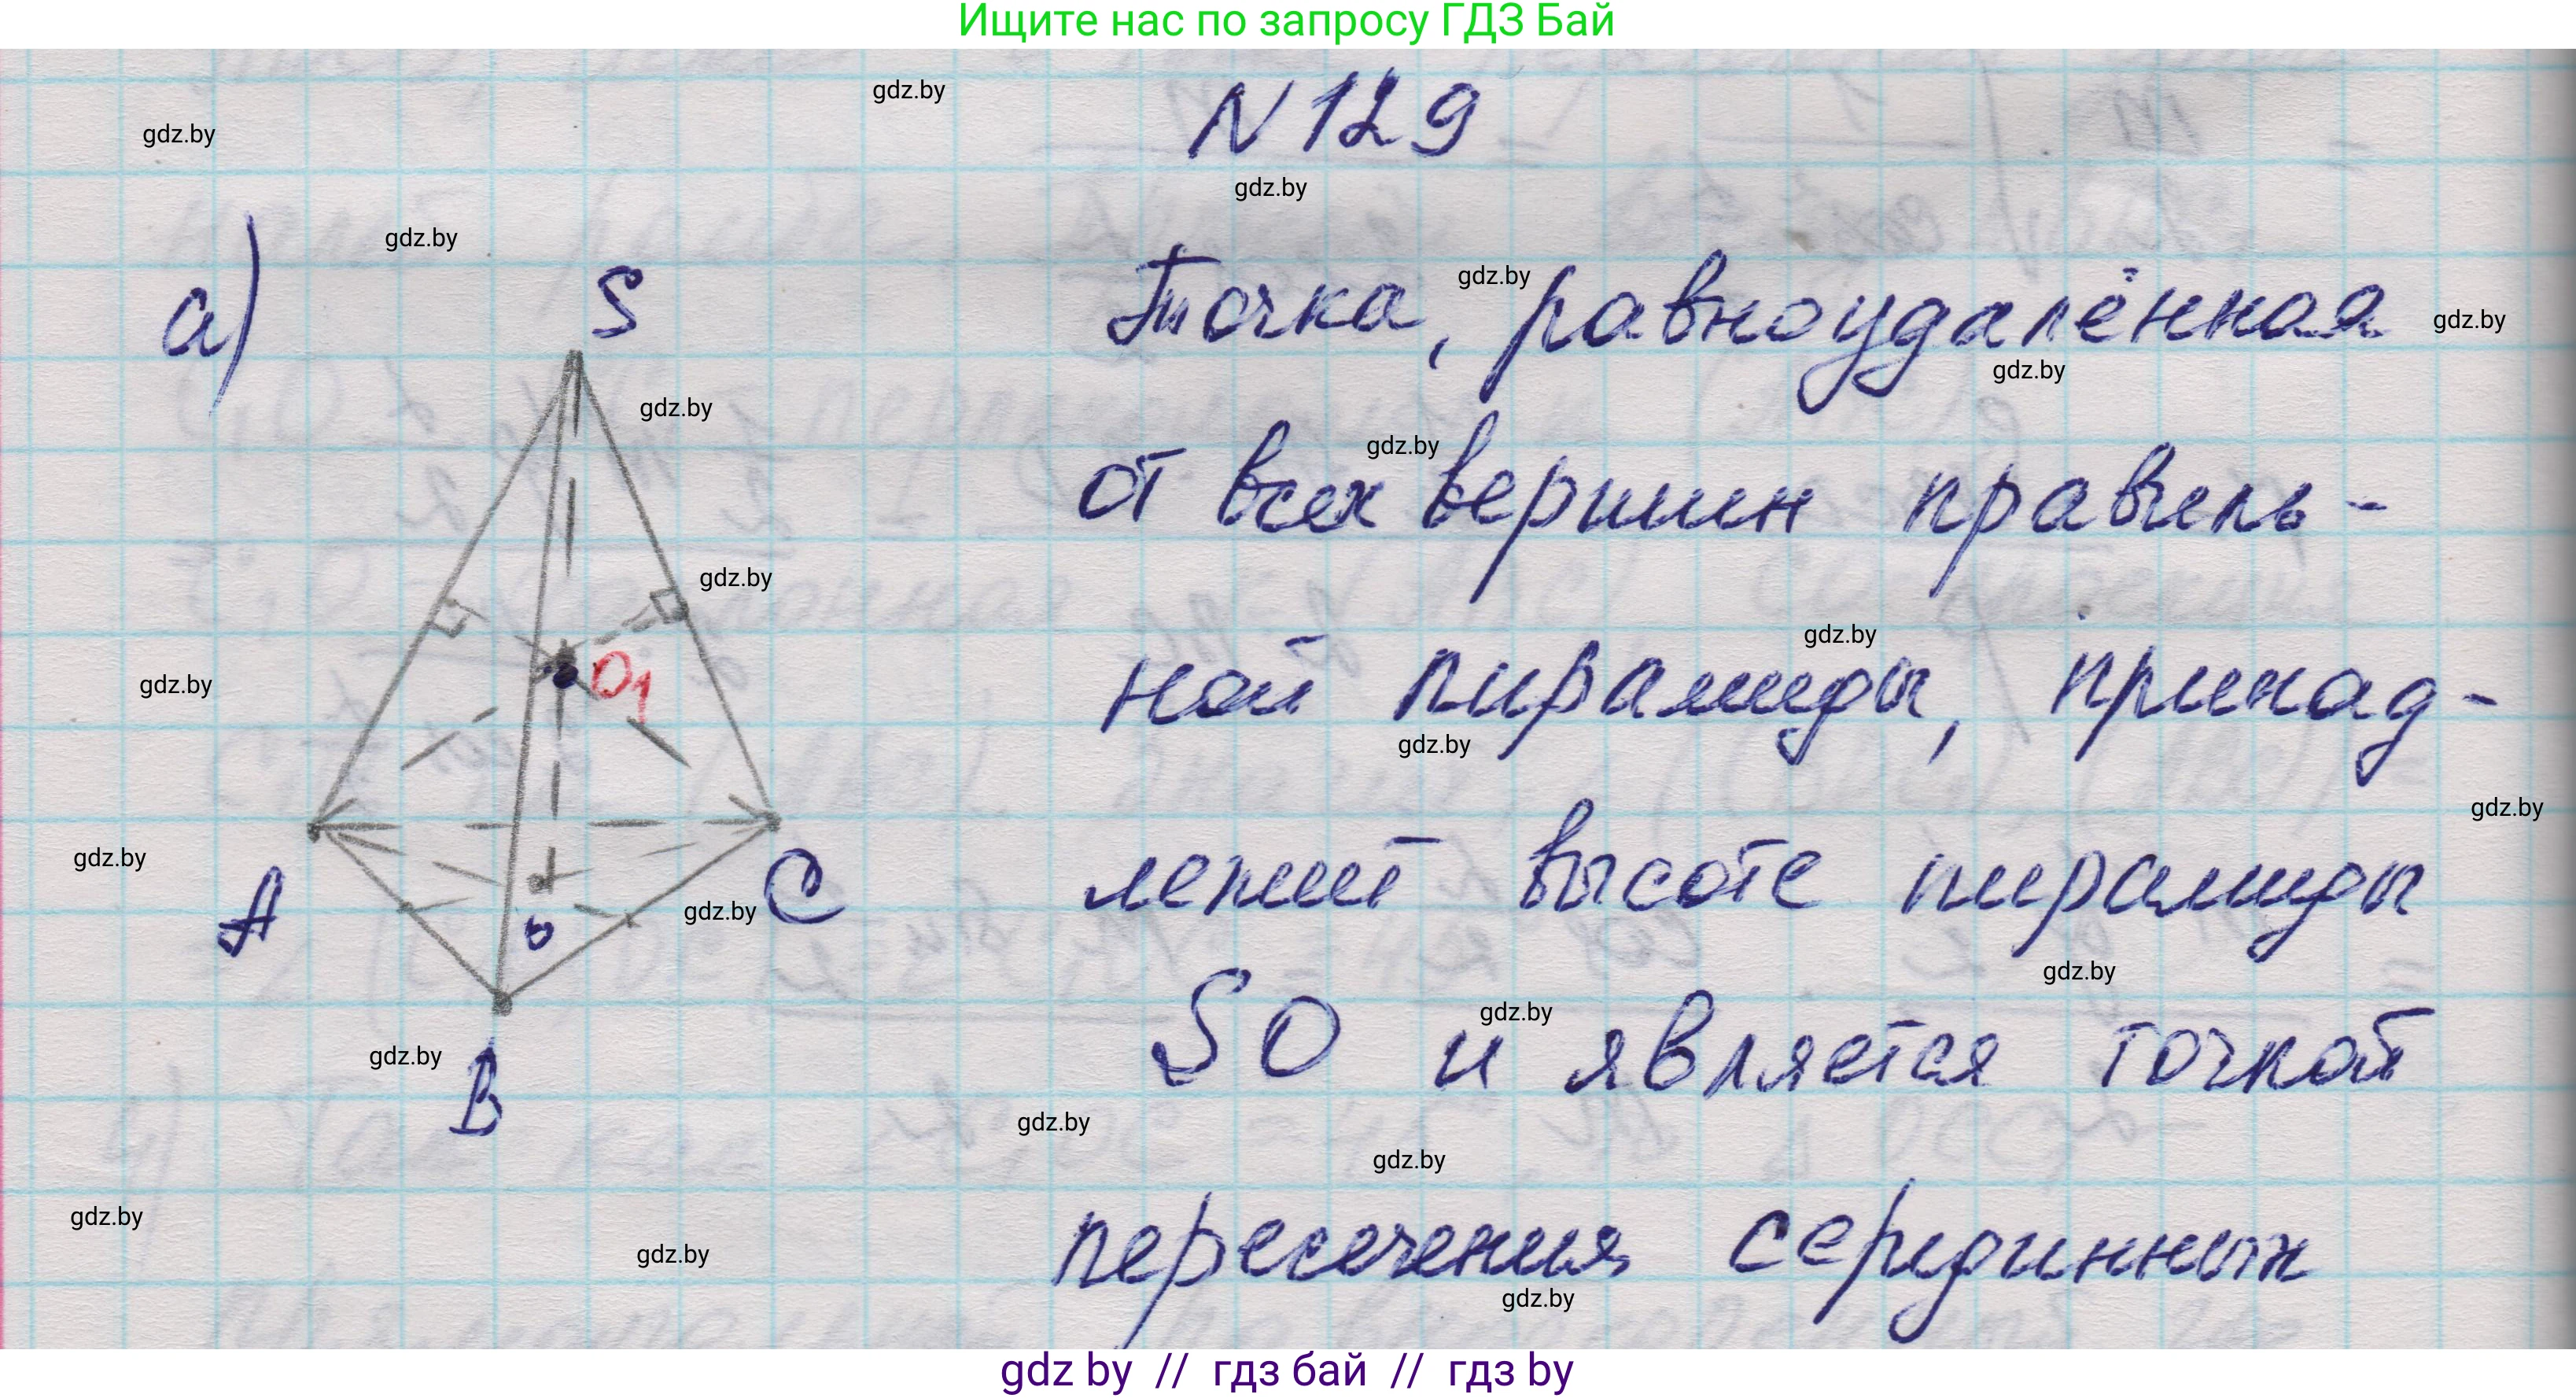 Ищите нас по запросу ГДЗ Бай
gdz.by
N 129
gdz.by
gdz.by
a)
gdz.by
S
Точка, равноудалённая
gdz.by
gdz.by
gdz.by
gdz.by
от всех вершин правиль-
gdz.by
gdz.by
ной пирамиды, принад-
gdz.by
O1
gdz.by
gdz.by
лежит высоте пирамиды
gdz.by
gdz.by
A
O
C
gdz.by
SO и является точкой
gdz.by
gdz.by
B
gdz.by
gdz.by
gdz.by
пересечения серединных
gdz.by
gdz.by
gdz.by
gdz by // гдз бай // гдз by